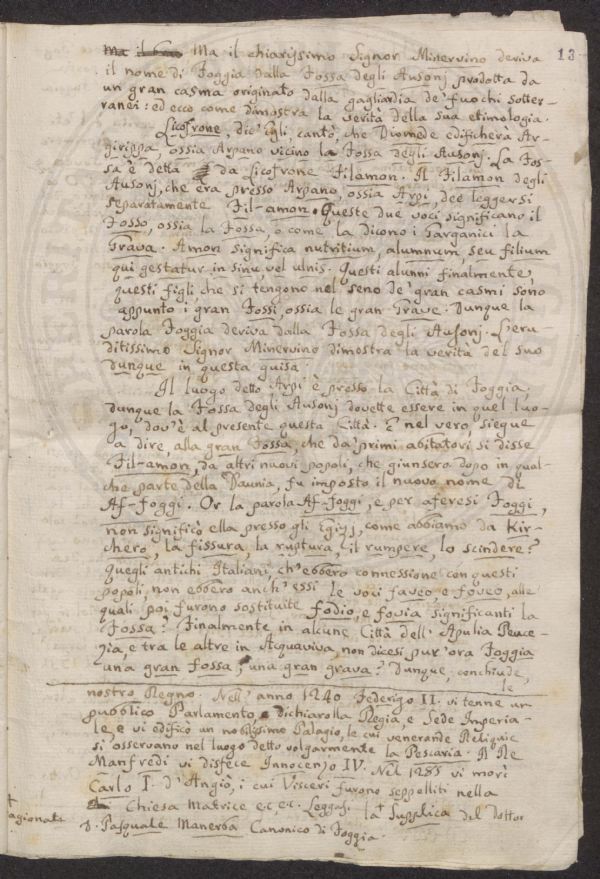 13
Ma il chiarissimo Signor Minervino deriva
il nome di Foggia dalla Fossa degli Ausonj prodotta da
un gran casma originato dalla gagliardia de' fuochi sotter-
ranei: ed ecco come dimostra la verità della sua etimologia.
Licofrone, dic' Egli, cantò, che Diomede edificherà Ar-
girippa, ossia Arpano vicino la Fossa degli Ausonj. La Fos-
sa è detta da Licofrone Filamon. Il Filamon degli
Ausonj, che era presso Arpano, ossia Arpi, dee leggersi
separatamente Fil-amon. Queste due voci significano il
Fosso, ossia la Fossa, o come la dicono i Garganici la
Grava. Amon significa nutritium, alumnum, seu filium
qui gestatur in sinu, vel ulnis. Questi alunni finalmente,
questi figli, che si tengono nel seno de' gran casmi sono
appunto i gran Fossi, ossia le gran Grave. Dunque la
parola Foggia deriva dalla Fossa degli Ausonj. L'eru
ditissimo Signor Minervino dimostra la verità del suo
dunque in questa guisa.
Il luogo detto Arpi è presso la Città di Foggia,
dunque la Fossa degli Ausonj dovette essere in quel luo-
go, dov'è al presente questa Città. E nel vero, siegue
a dire, alla gran Fossa, che da' primi abitatori si disse
Fil-amon, da altri nuovi popoli, che giunsero dopo in qual-
che parte della Daunia, fu imposto il nuovo nome di
Af-Foggi. Or la parola Af-foggi, e per aferesi Foggi,
non significò ella presso gli Egizj, come abbiamo da Kir-
chero, la fissura, la ruptura, il rumpere, lo scindere?
Quegli antichi Italiani, ch'ebbero connessione con questi
popoli, non ebbero anch'essi le voci faveo, e foveo, alle
quali poi furono sostituite fodio, e fovia significanti la
Fossa? Finalmente in alcune Città dell'Apulia Peuce-
zia, e tra le altre in Acquaviva, non dicesi pur'ora Foggia
una gran fossa, una gran grava? Dunque, conchiude,
le
nostro Regno. Nell'anno 1240 Federigo II. vi tenne un
pubblico Parlamento, e dichiarolla Regia, e Sede Imperia-
le, e vi edificò un nobilissimo Palagio, le cui venerande Reliquie
si osservano nel luogo detto volgarmente la Pescaria. Il Re
Manfredi vi disfece Innocenzo IV. Nel 1285 vi morì
Carlo I. d'Angiò, i cui Visceri furono seppelliti nella
Chiesa Matrice e.c. e.c. Leggasi la † Supplica del Dottor
† agionata
D. Pasquale Manerba Canonico di Foggia.